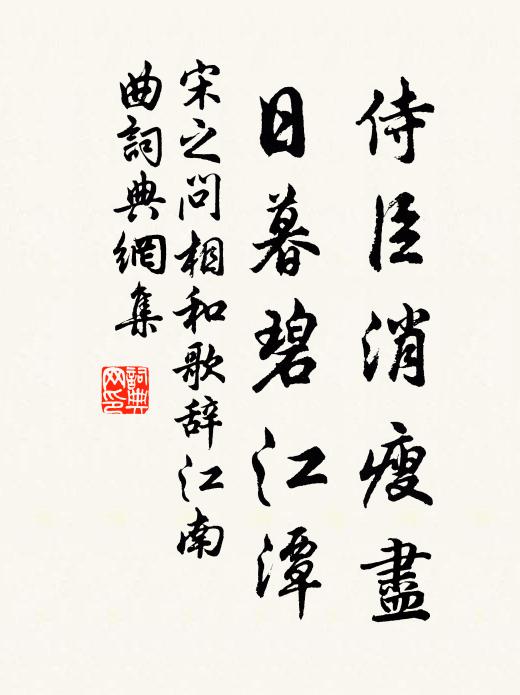 侍臣消瘦盡
日暮碧江潭
宋之问相和歌辞江南
曲詞典網集
詞典网印